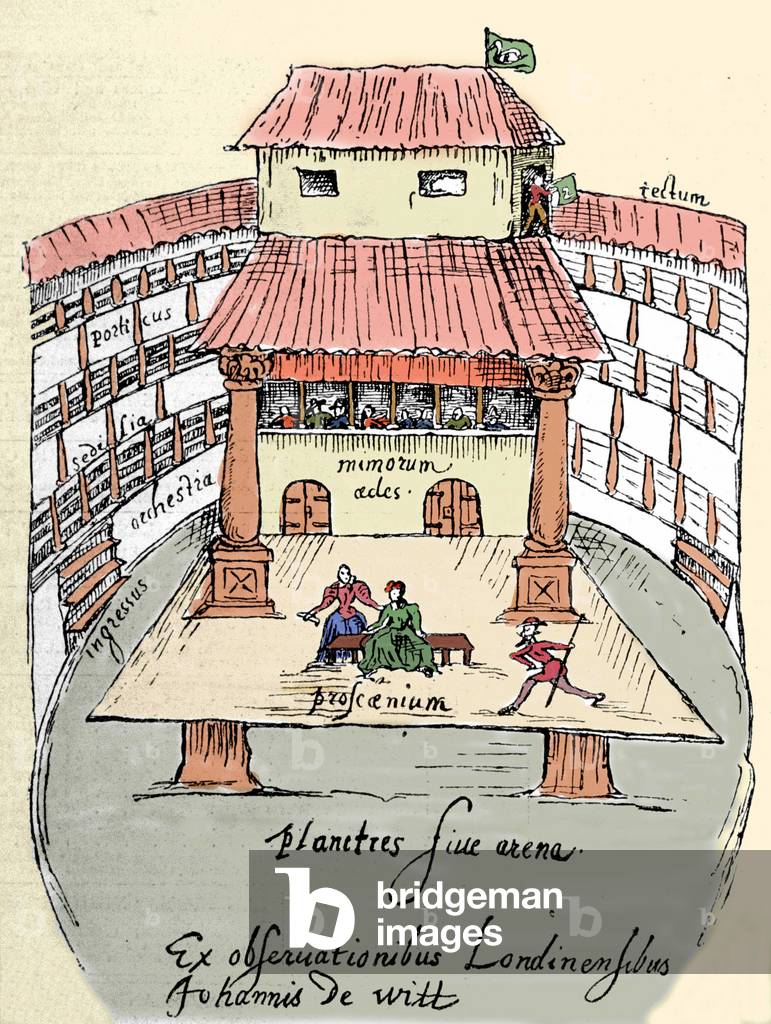 tectum
porticus
sedilia
orchestra
mimorum
ædes.
ingressus
proscænium
planities siue arena.
Ex obseruationibus Londinensibus
Johannis De witt
bridgeman
images